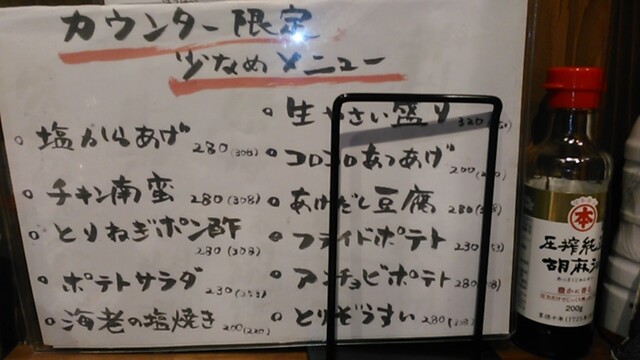 カウンター限定
少なめメニュー
塩からあげ 280(308)
チキン南蛮 280(308)
とりねぎポン酢
280(308)
ポテトサラダ 230(253)
海老の塩焼き 200(220)
生やさい盛り 320
コロコロあつあげ
200
あげだし豆腐 280
フライドポテト 230
アンチョビポテト 280
とりぞうすい 280
本
圧搾純
胡麻油
豊かに香る
200g